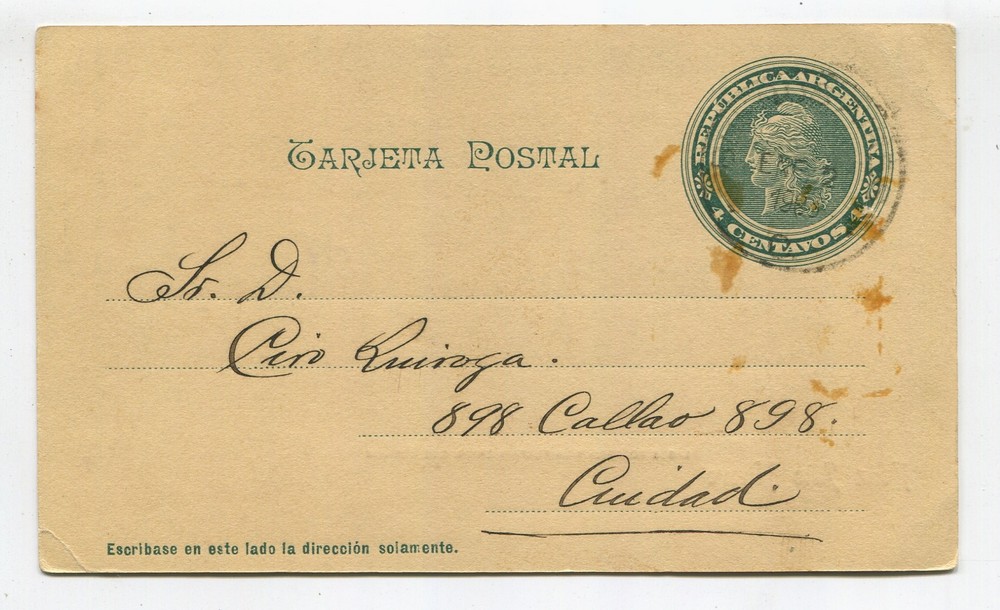 REPÚBLICA ARGENTINA
4 CENTAVOS 4
TARJETA POSTAL
Sr. D.
Ciro Quiroga.
898 Callao 898.
Ciudad.
Escribase en este lado la dirección solamente.